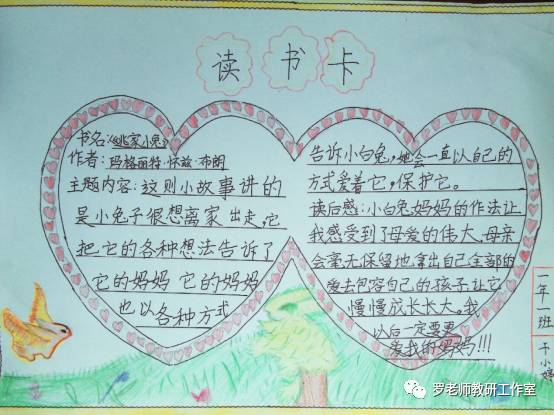 读书卡
书名:《逃家小兔》
作者:玛格丽特·怀兹·布朗
主题内容:这则小故事讲的
是小兔子很想离家出走,它
把它的各种想法告诉了
它的妈妈 它的妈妈
也以各种方式
告诉小白兔,她会一直以自己的
方式爱着它,保护它。
读后感:小白兔妈妈的作法让
我感受到了母爱的伟大,母亲
会毫无保留地拿出自己全部的
爱去包容自己的孩子,让它
慢慢成长长大。我
以后一定要更
爱我的妈妈!!!
一年一班
罗老师教研工作室